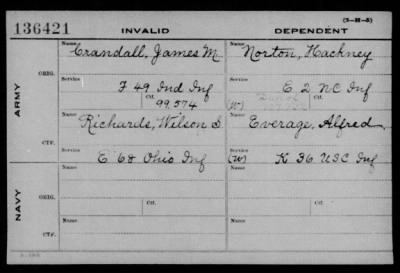 (3-H-5)
136421 INVALID DEPENDENT
Name Crandall, James M Name Norton, Hackney
ARMY
ORIG.
Service F 49 Ind Inf Service E 2 NC Inf
Ctf. 99,574 (W) Ctf.
Name Richards, Wilson S Name Everage, Alfred
CTF.
Service E 68 Ohio Inf Service (W) K 36 USC Inf
NAVY
Name Name
ORIG.
Ctf. Ctf.
Name Name
CTF.